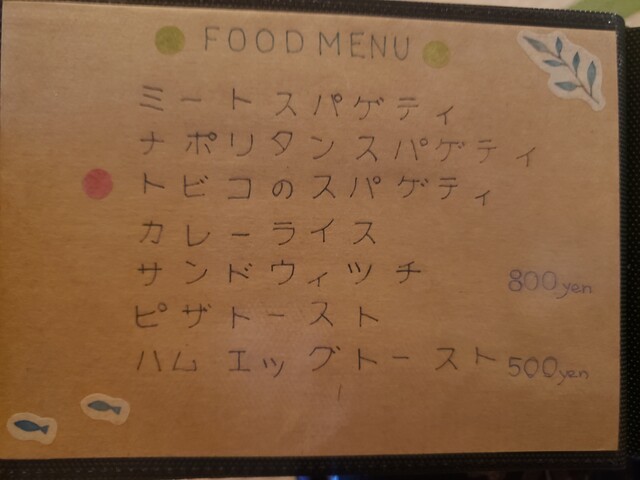 FOOD MENU
ミートスパゲティ
ナポリタンスパゲティ
トビコのスパゲティ
カレーライス
サンドウィッチ 800yen
ピザトースト
ハムエッグトースト 500yen